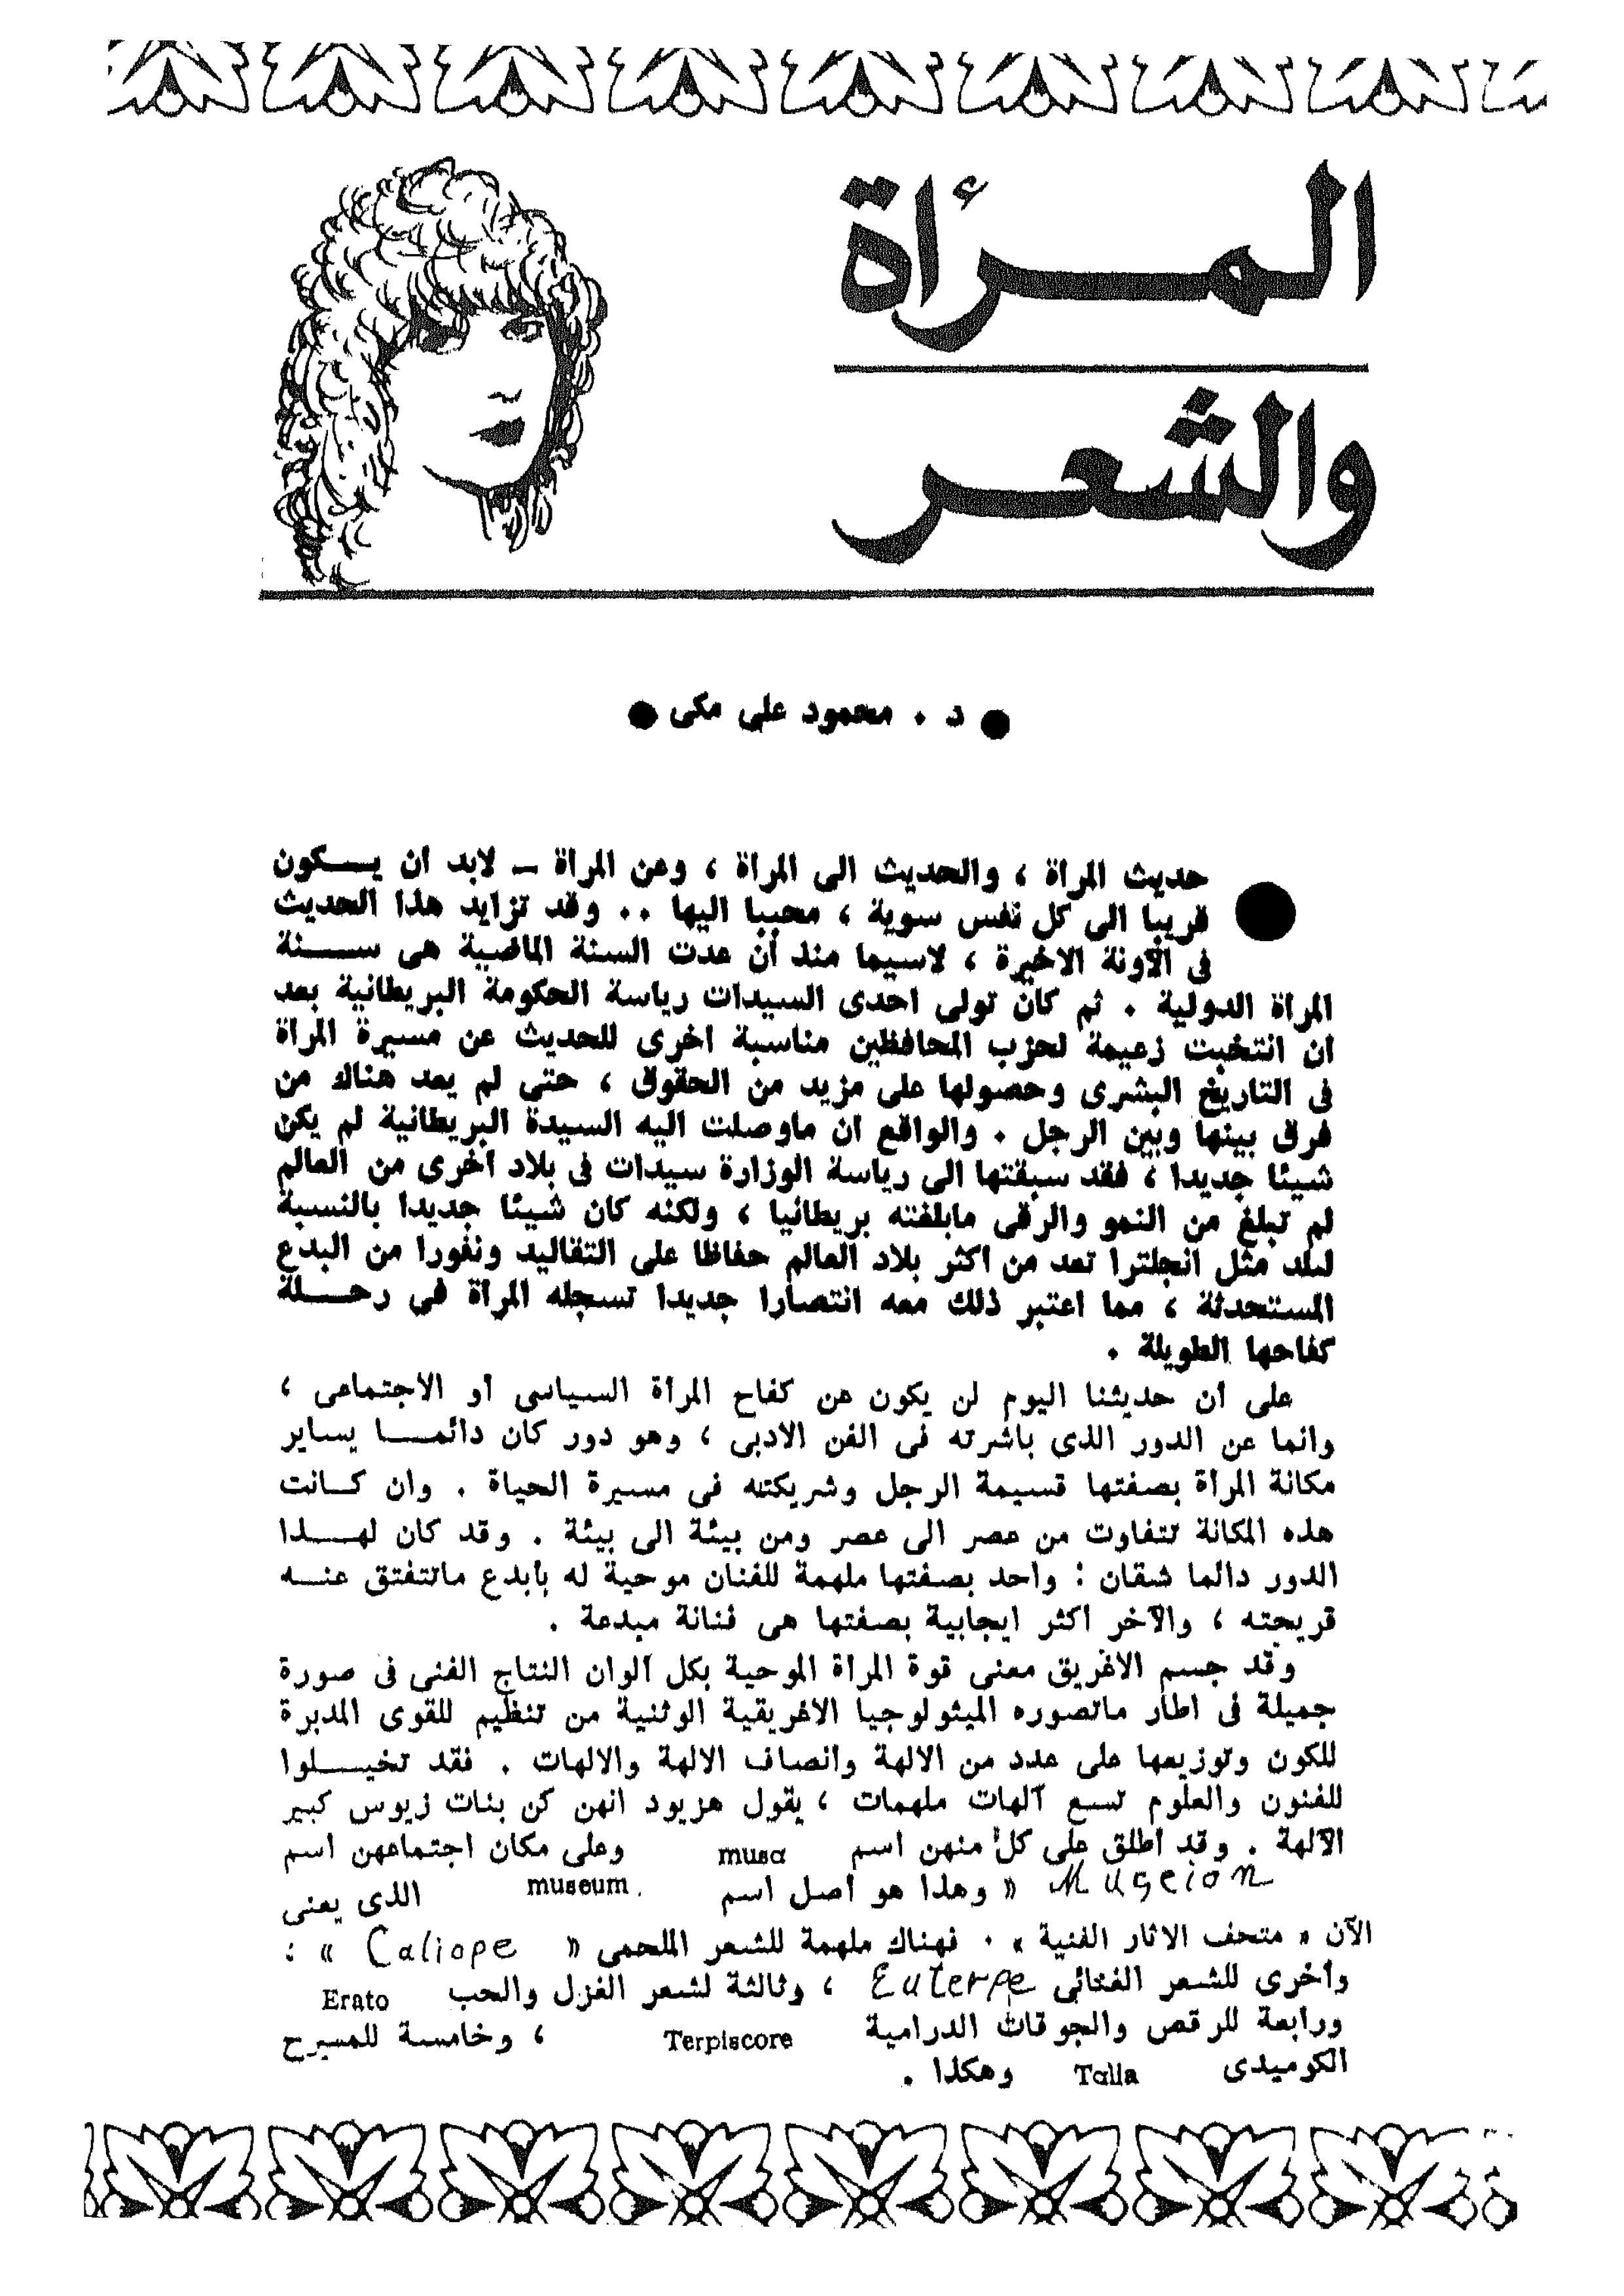 المرأة
والشعر
● د . محمود على مكى ●
● حديث المرأة ، والحديث الى المرأة ، وعن المرأة – لابد أن يكون
قريبا الى كل نفس سوية ، محببا اليها .. وقد تزايد هذا الحديث
فى الآونة الاخيرة ، لاسيما منذ أن عدت السنة الماضية هى سنة
المرأة الدولية . ثم كان تولى احدى السيدات رياسة الحكومة البريطانية بعد
ان انتخبت زعيمة لحزب المحافظين مناسبة اخرى للحديث عن مسيرة المرأة
فى التاريخ البشرى وحصولها على مزيد من الحقوق ، حتى لم يعد هناك من
فرق بينها وبين الرجل . والواقع ان ماوصلت اليه السيدة البريطانية لم يكن
شيئا جديدا ، فقد سبقتها الى رياسة الوزارة سيدات فى بلاد أخرى من العالم
لم تبلغ من النمو والرقى مابلغته بريطانيا ، ولكنه كان شيئا جديدا بالنسبة
لبلد مثل انجلترا تعد من اكثر بلاد العالم حفاظا على التقاليد ونفورا من البدع
المستحدثة ، مما اعتبر ذلك معه انتصارا جديدا تسجله المرأة فى رحلة
كفاحها الطويلة .
على ان حديثنا اليوم لن يكون عن كفاح المرأة السياسى أو الاجتماعى ،
وانما عن الدور الذى باشرته فى الفن الادبى ، وهو دور كان دائما يساير
مكانة المرأة بصفتها قسيمة الرجل وشريكته فى مسيرة الحياة . وان كانت
هذه المكانة تتفاوت من عصر الى عصر ومن بيئة الى بيئة . وقد كان لهذا
الدور دائما شقان : واحد بصفتها ملهمة للفنان موحية له بأبدع ماتتفتق عنه
قريحته ، والآخر اكثر ايجابية بصفتها هى فنانة مبدعة .
وقد جسم الاغريق معنى قوة المرأة الموحية بكل ألوان النتاج الفنى فى صورة
جميلة فى اطار ماتصوره الميثولوجيا الاغريقية الوثنية من تنظيم للقوى المدبرة
للكون وتوزيعها على عدد من الالهة وانصاف الالهة والالهات . فقد تخيلوا
للفنون والعلوم تسع آلهات ملهمات ، يقول هزيود انهن كن بنات زيوس كبير
الآلهة . وقد أطلق على كل منهن اسم musa وعلى مكان اجتماعهن اسم
Museion « وهذا هو أصل اسم museum . الذى يعنى
الآن « متحف الاثار الفنية » . فهناك ملهمة للشعر الملحمى « Caliope » :
وأخرى للشعر الغنائى Euterpe ، وثالثة لشعر الغزل والحب Erato
ورابعة للرقص والجوقات الدرامية Terpiscore ، وخامسة للمسرح
الكوميدى Talia وهكذا .